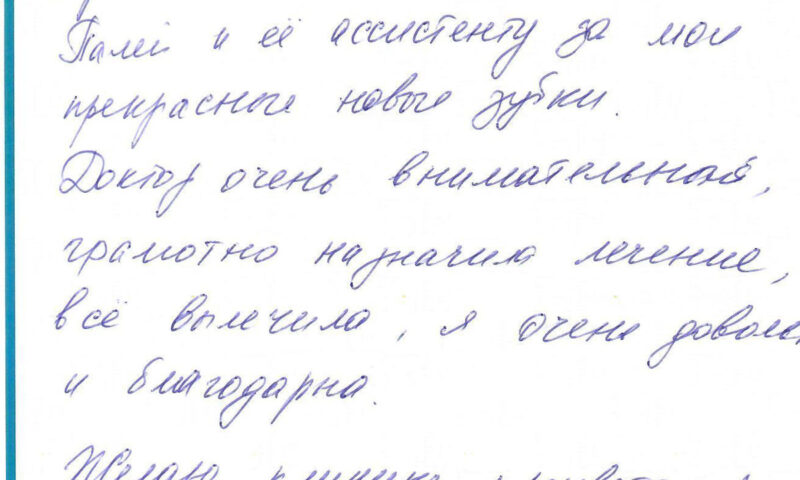 Палей и её ассистенту за мои
прекрасные новые зубки.
Доктор очень внимательный,
грамотно назначила лечение,
всё вылечила, я очень доволь
и благодарна.
Желаю клинике